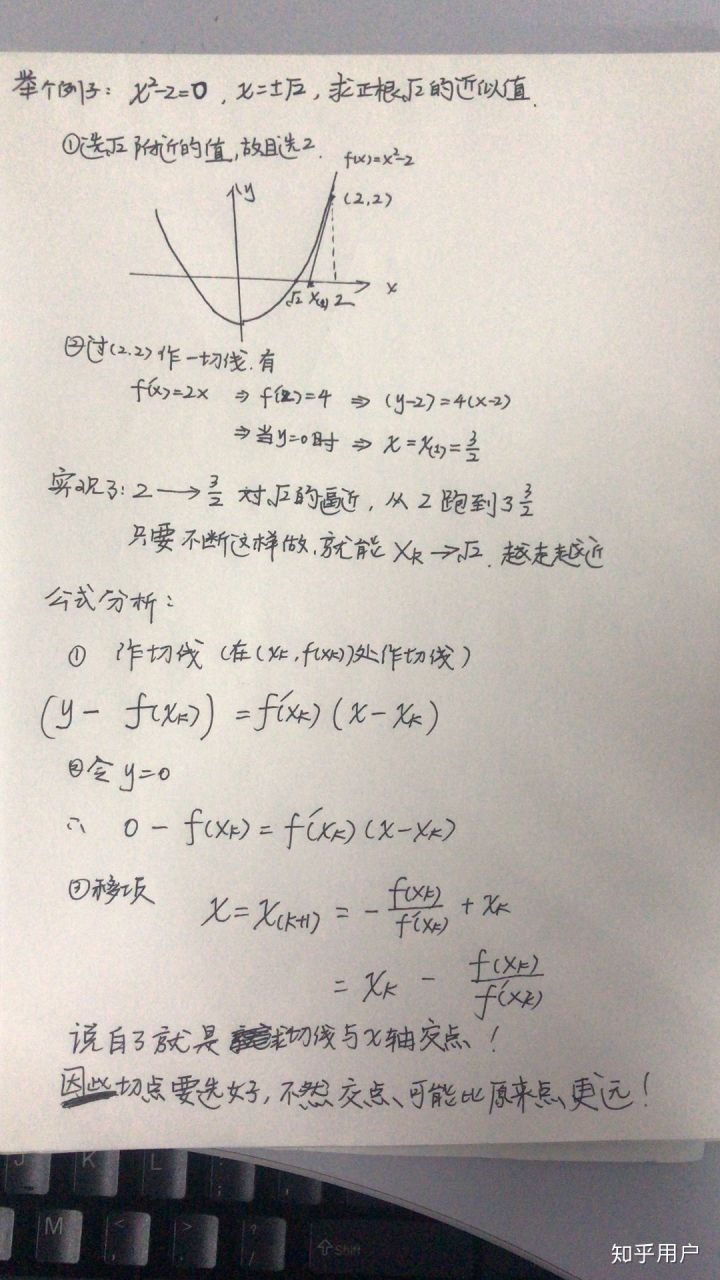 举个例子: x²-2=0 , x=±√2 , 求正根√2的近似值.
①选√2附近的值,故且选2.
f(x)=x²-2
y
(2,2)
√2 x₍₁₎ 2
x
②过(2.2)作一切线.有
f'(x)=2x ⇒ f'(2)=4 ⇒ (y-2)=4(x-2)
⇒当y=0时 ⇒ x=x₍₁₎=3/2
实现了: 2 → 3/2 对√2的逼近, 从2跑到3 3/2
只要不断这样做.就能 x_K→√2. 越走越近
公式分析:
① 作切线 (在(x_K,f(x_K))处作切线)
(y- f(x_K)) =f'(x_K) (x-x_K)
②令y=0
∴ 0-f(x_K)=f'(x_K)(x-x_K)
③移项 x=x_(K+1) = - f(x_K)/f'(x_K) + x_K
= x_K - f(x_K)/f'(x_K)
说白了就是 求切线与x轴交点!
因此切点要选好了,不然交点、可能比原来点更远!
J K L : ;
M < , > . ? / ⇧Shift
知乎用户